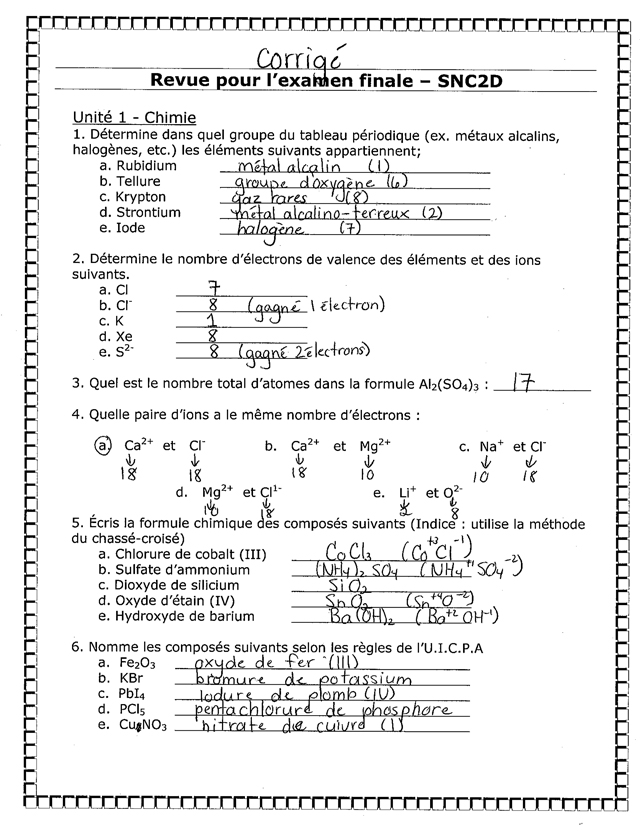 Corrigé
Revue pour l'examen finale – SNC2D
Unité 1 - Chimie
1. Détermine dans quel groupe du tableau périodique (ex. métaux alcalins,
halogènes, etc.) les éléments suivants appartiennent;
a. Rubidium métal alcalin (1)
b. Tellure groupe d'oxygène (6)
c. Krypton gaz rares (8)
d. Strontium métal alcalino-terreux (2)
e. Iode halogène (7)
2. Détermine le nombre d'électrons de valence des éléments et des ions
suivants.
a. Cl 7
b. Cl⁻ 8 (gagné 1 électron)
c. K 1
d. Xe 8
e. S²⁻ 8 (gagné 2 électrons)
3. Quel est le nombre total d'atomes dans la formule Al₂(SO₄)₃ : 17
4. Quelle paire d'ions a le même nombre d'électrons :
a. Ca²⁺ et Cl⁻ b. Ca²⁺ et Mg²⁺ c. Na⁺ et Cl⁻
↓ ↓ ↓ ↓ ↓ ↓
18 18 18 10 10 18
d. Mg²⁺ et Cl¹⁻ e. Li⁺ et O²⁻
↓ ↓ ↓ ↓
10 18 2 8
5. Écris la formule chimique des composés suivants (Indice : utilise la méthode
du chassé-croisé)
a. Chlorure de cobalt (III) CoCl₃ (Co⁺³Cl⁻¹)
b. Sulfate d'ammonium (NH₄)₂ SO₄ (NH₄⁺¹ SO₄⁻²)
c. Dioxyde de silicium SiO₂
d. Oxyde d'étain (IV) SnO₂ (Sn⁺⁴O⁻²)
e. Hydroxyde de barium Ba(OH)₂ (Ba⁺²OH⁻¹)
6. Nomme les composés suivants selon les règles de l'U.I.C.P.A
a. Fe₂O₃ oxyde de fer (III)
b. KBr bromure de potassium
c. PbI₄ Iodure de plomb (IV)
d. PCl₅ pentachlorure de phosphore
e. CuNO₃ nitrate de cuivre (I)